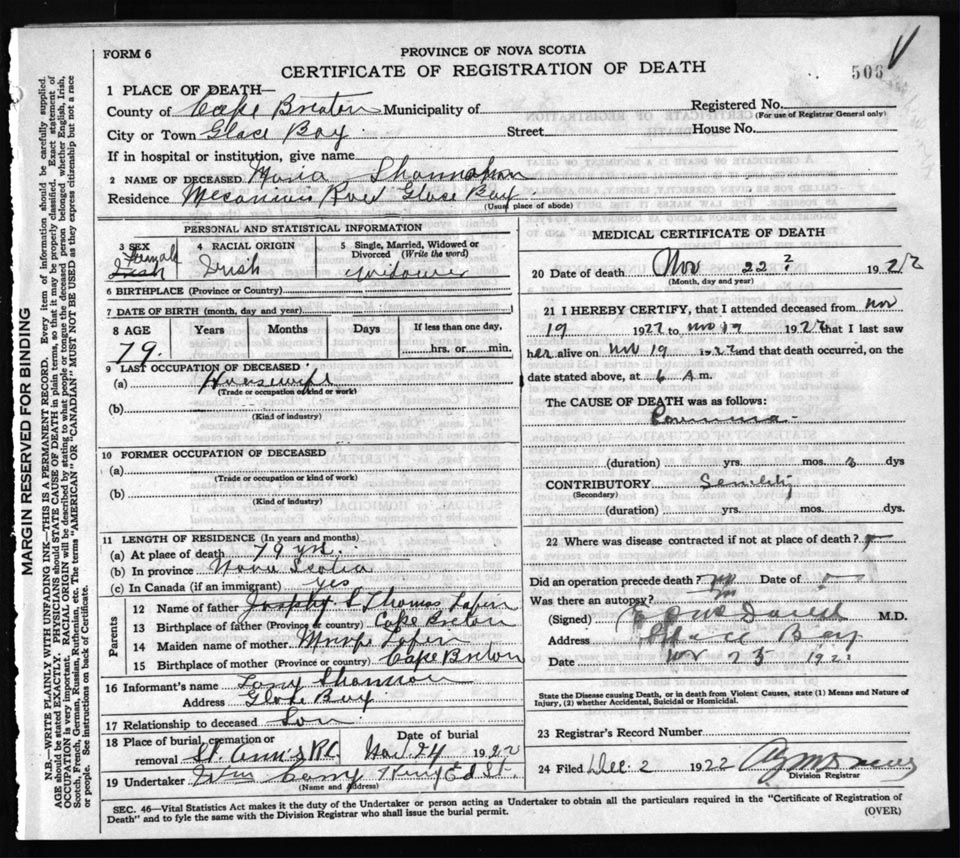 FORM 6
PROVINCE OF NOVA SCOTIA
CERTIFICATE OF REGISTRATION OF DEATH
506
1 PLACE OF DEATH—
County of Cape Breton Municipality of
Registered No.
(For use of Registrar General only)
City or Town Glace Bay Street House No.
If in hospital or institution, give name
2 NAME OF DECEASED Maria Shannahan
Residence Road Glace Bay
(Usual place of abode)
PERSONAL AND STATISTICAL INFORMATION
3 SEX Female Irish
4 RACIAL ORIGIN Irish
5 Single, Married, Widowed or Divorced (Write the word) widower
6 BIRTHPLACE (Province or Country)
7 DATE OF BIRTH (month, day and year)
8 AGE Years Months Days If less than one day,
79. hrs. or min.
9 LAST OCCUPATION OF DECEASED
(a) Housewife
(Trade or occupation or kind or work)
(b)
(Kind of industry)
10 FORMER OCCUPATION OF DECEASED
(a)
(Trade or occupation or kind of work)
(b)
(Kind of industry)
11 LENGTH OF RESIDENCE (In years and months)
(a) At place of death 79 yrs.
(b) In province Nova Scotia
(c) In Canada (if an immigrant) Yes
Parents
12 Name of father Joseph Thomas
13 Birthplace of father (Province or country) Cape Breton
14 Maiden name of mother
15 Birthplace of mother (Province or country) Cape Breton
16 Informant's name Shannon
Address Glace Bay
17 Relationship to deceased Son
18 Place of burial, cremation or removal St. Ann's R.C. Date of burial Nov 24 1922
19 Undertaker Wm King Ed St.
(Name and Address)
MEDICAL CERTIFICATE OF DEATH
20 Date of death Nov 22 ? 1922
(Month, day and year)
21 I HEREBY CERTIFY, that I attended deceased from Nov
19 1922 to Nov 19 1922 that I last saw
her alive on Nov 19 1922 and that death occurred, on the
date stated above, at 6 A.m.
The CAUSE OF DEATH was as follows:
(duration) yrs. mos. 3 dys
CONTRIBUTORY Senility
(Secondary)
(duration) yrs. mos. dys.
22 Where was disease contracted if not at place of death?
Did an operation precede death? no Date of
Was there an autopsy? no
(Signed) M.D.
Address Glace Bay
Date Nov 23 192
State the Disease causing Death, or in death from Violent Causes, state (1) Means and Nature of
Injury, (2) whether Accidental, Suicidal or Homicidal.
23 Registrar's Record Number
24 Filed Dec. 2 1922
Division Registrar
SEC. 46—Vital Statistics Act makes it the duty of the Undertaker or person acting as Undertaker to obtain all the particulars required in the "Certificate of Registration of
Death" and to fyle the same with the Division Registrar who shall issue the burial permit.
(OVER)
MARGIN RESERVED FOR BINDING
N.B.—WRITE PLAINLY WITH UNFADING INK—THIS IS A PERMANENT RECORD. Every item of information should be carefully supplied.
AGE should be stated EXACTLY. PHYSICIANS should STATE CAUSE OF DEATH in plain terms, so that it may be properly classified. Exact statement of
OCCUPATION is very important. RACIAL ORIGIN will be described by stating to what people or tongue the deceased person belonged whether English, Irish,
Scotch, French, German, Russian, Ruthenian, etc. The terms "AMERICAN" or "CANADIAN" MUST NOT BE USED as they express citizenship but not a race
or people. See instructions on back of Certificate.